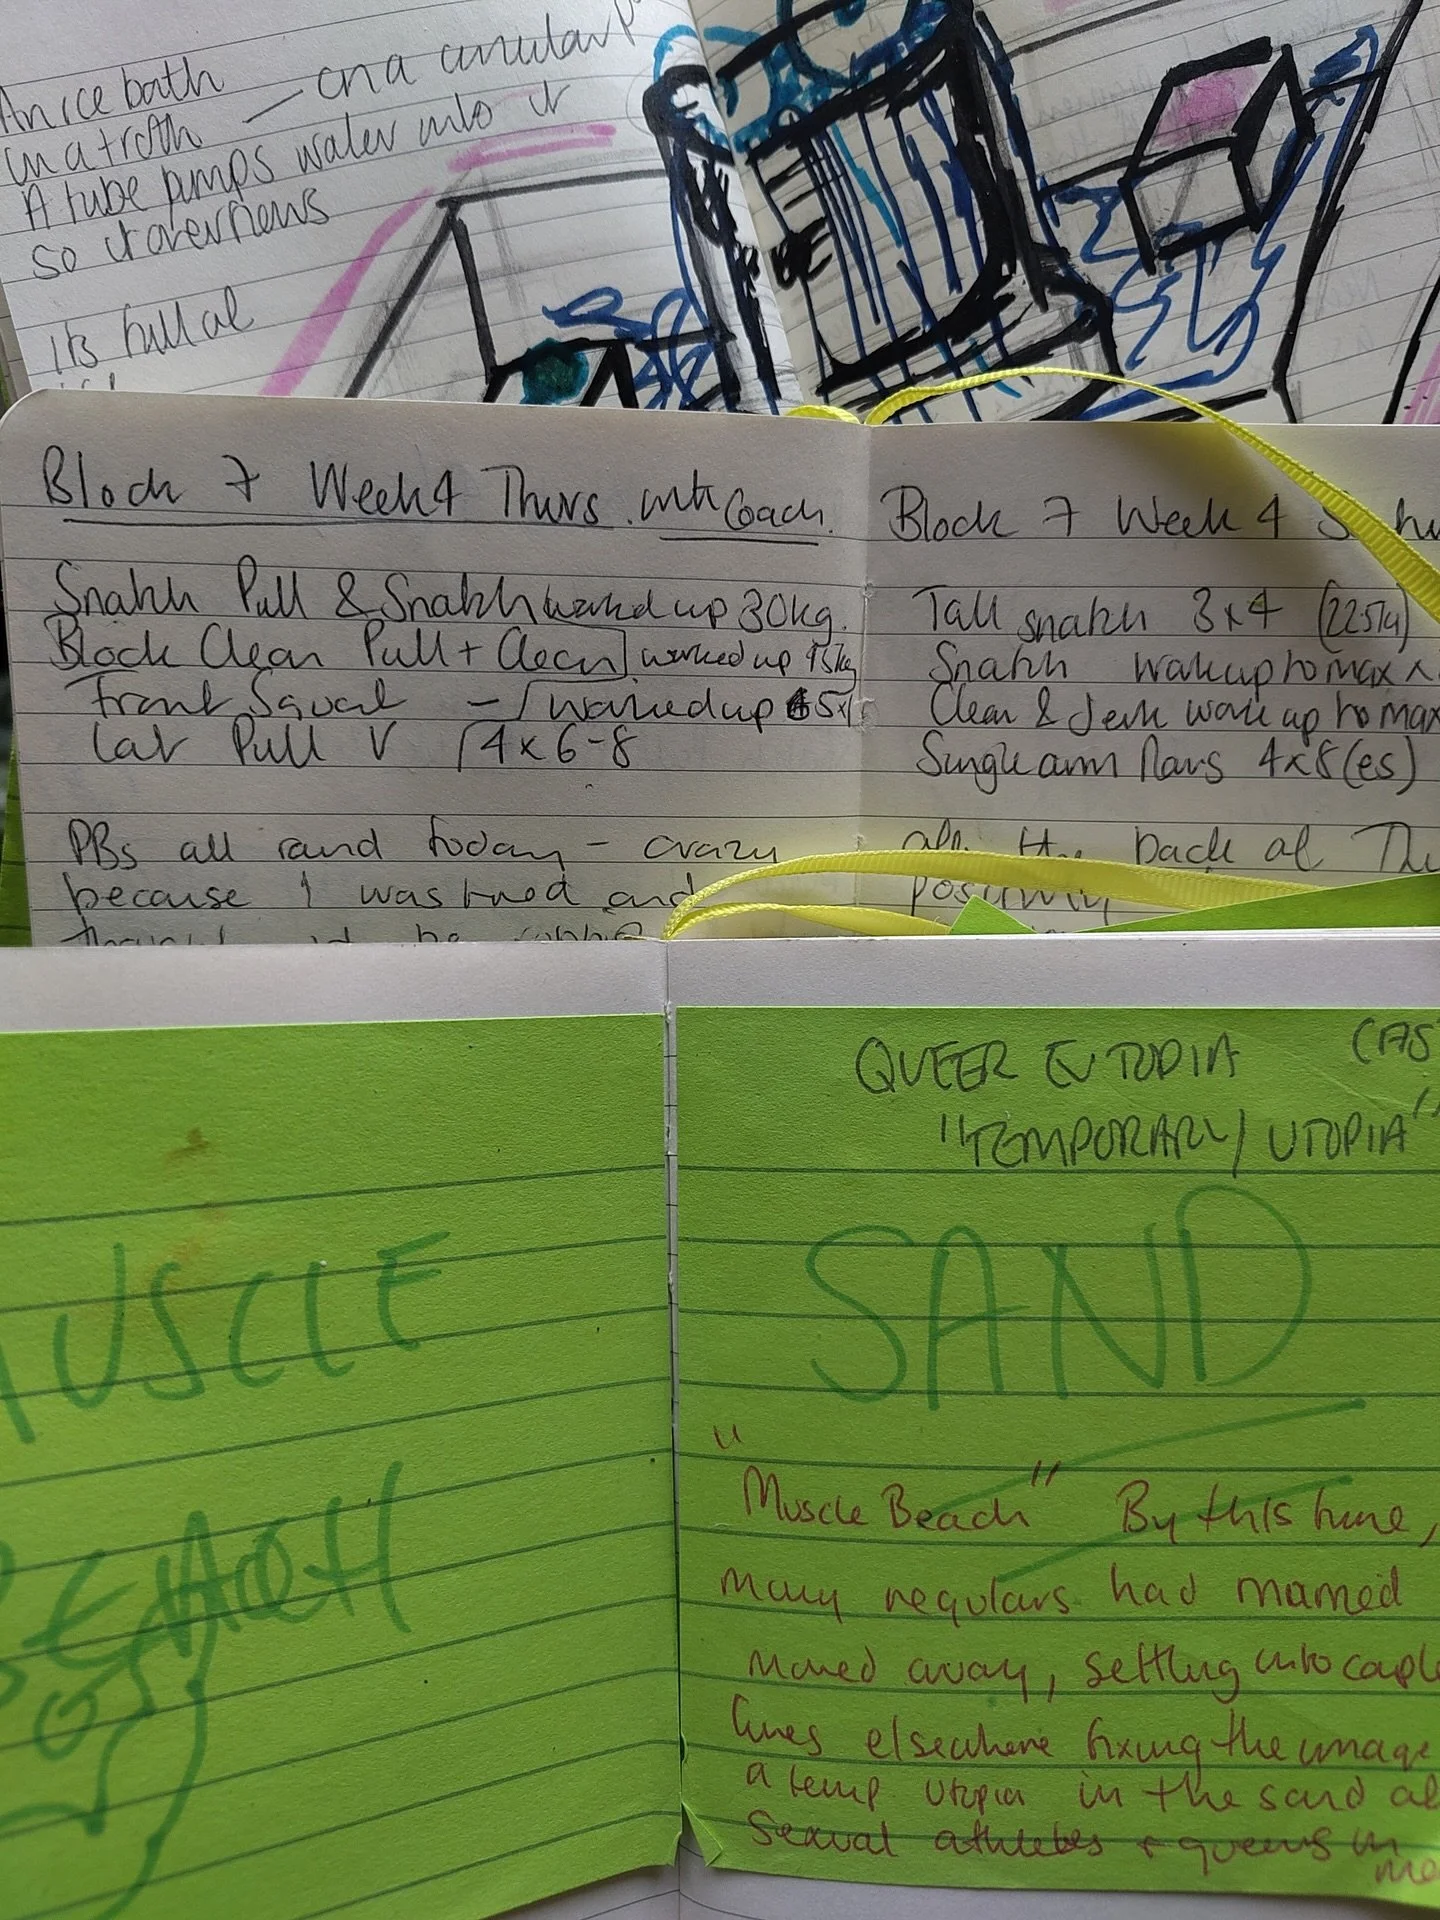 An ice bath
in a troth — on a circular
A tube pumps water into it
so it overflows
its full of
Block 7 Week 4 Thurs. with Coach.
Snatch Pull & Snatch worked up 30kg.
Block Clean Pull + Clean worked up 45kg
Front Squat — worked up 65x1
Lat Pull V 4x6-8
PBs all round today - crazy
because I was tired and
thought it'd be
Block 7 Week 4
Tall snatch 3x4 (22.5kg)
Snatch work up to max
Clean & Jerk work up to max
Single arm Rows 4x8 (es)
off the back of
positivity
MUSCLE
BEACH
QUEER EUTOPIA
"TEMPORARY UTOPIA"
SAND
"Muscle Beach" By this time,
many regulars had married
moved away, settling into
lives elsewhere fixing the image
a temp utopia in the sand of
sexual athletes + queens in